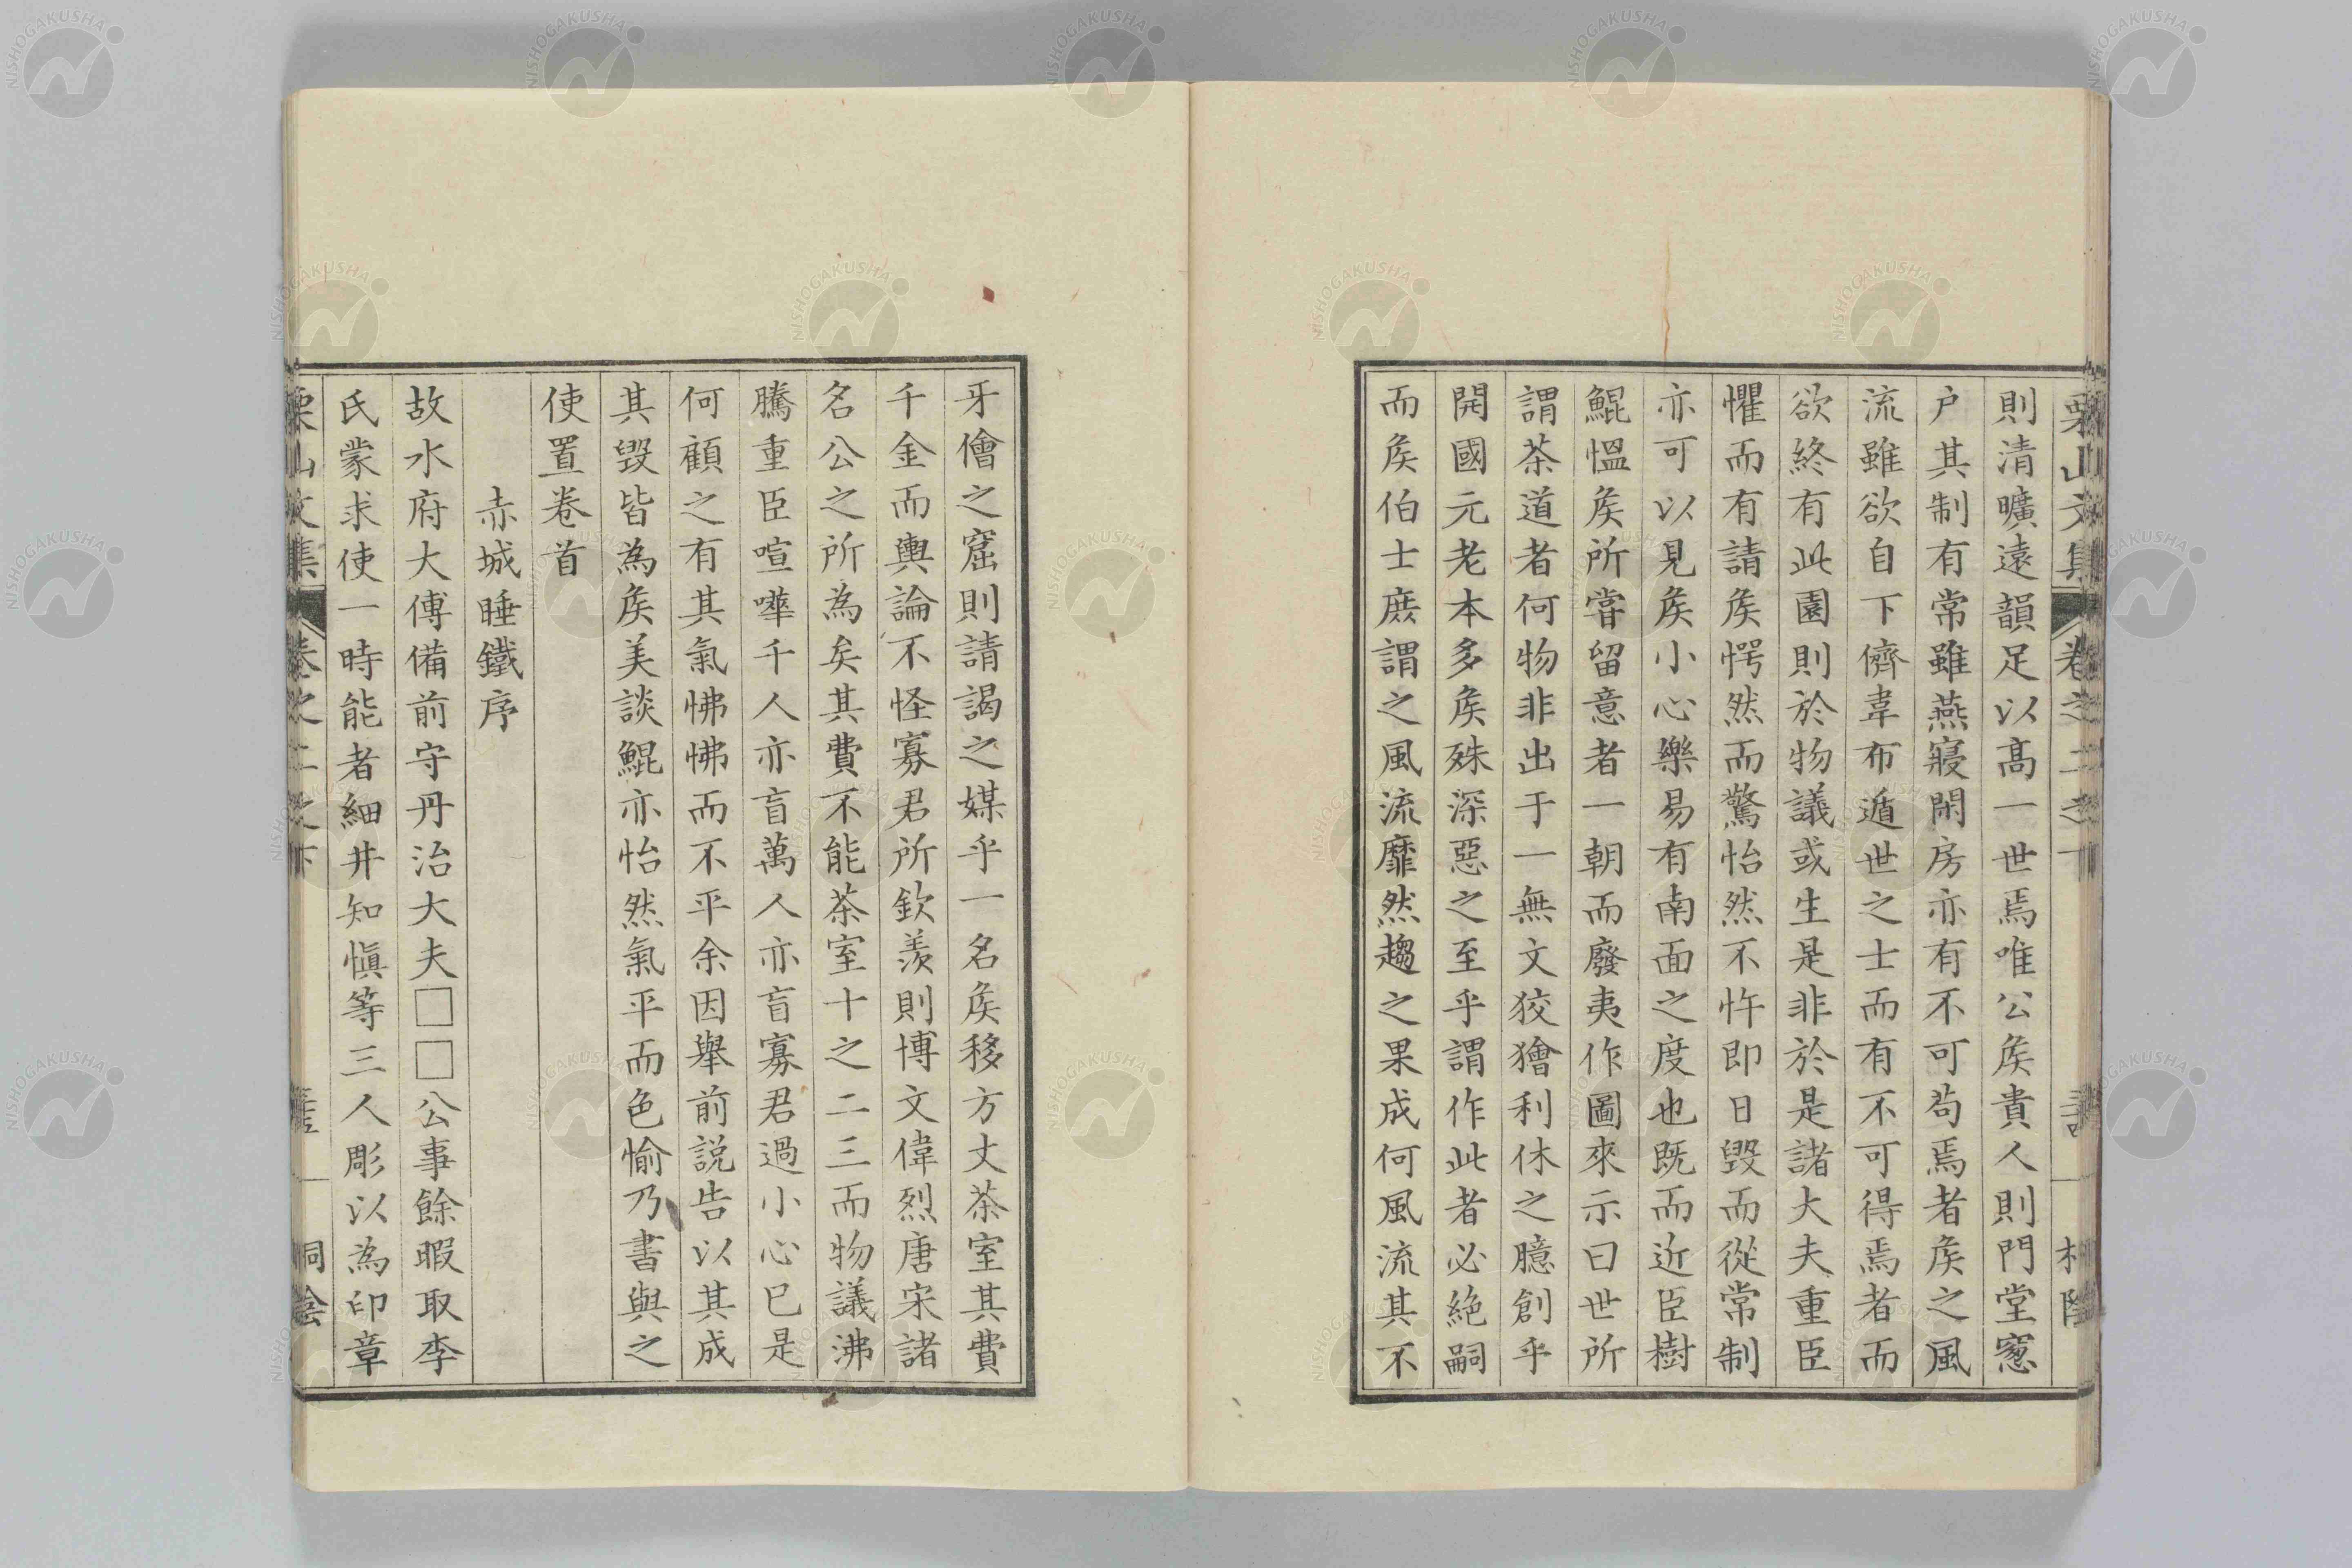 栗山文集 卷之二之下
則清曠遠韻足以髙一世焉唯公矦貴人則門堂窻
户其制有常雖燕寢閑房亦有不可苟焉者矦之風
流雖欲自下儕韋布遁世之士而有不可得焉者而
欲終有此園則於物議或生是非於是諸大夫重臣
懼而有請矦愕然而驚怡然不忤即日毀而從常制
亦可以見矦小心樂易有南面之度也既而近臣樹
鯤慍矦所甞留意者一朝而廢夷作圖來示曰世所
謂茶道者何物非出于一無文狡獪利休之臆創乎
開國元老本多矦殊深惡之至乎謂作此者必絶嗣
而矦伯士庶謂之風流靡然趨之果成何風流其不
牙儈之窟則請謁之媒乎一名矦移方丈茶室其費
千金而輿論不怪寡君所欽羨則博文偉烈唐宋諸
名公之所為矣其費不能茶室十之二三而物議沸
騰重臣喧嘩千人亦盲萬人亦盲寡君過小心已是
何顧之有其氣怫怫而不平余因舉前説告以其成
其毀皆為矦美談鯤亦怡然氣平而色愉乃書與之
使置卷首
赤城睡鐵序
故水府大傅備前守丹治大夫□□公事餘暇取李
氏蒙求使一時能者細井知愼等三人彫以為印章
栗山文集 卷之二之下 桐陰